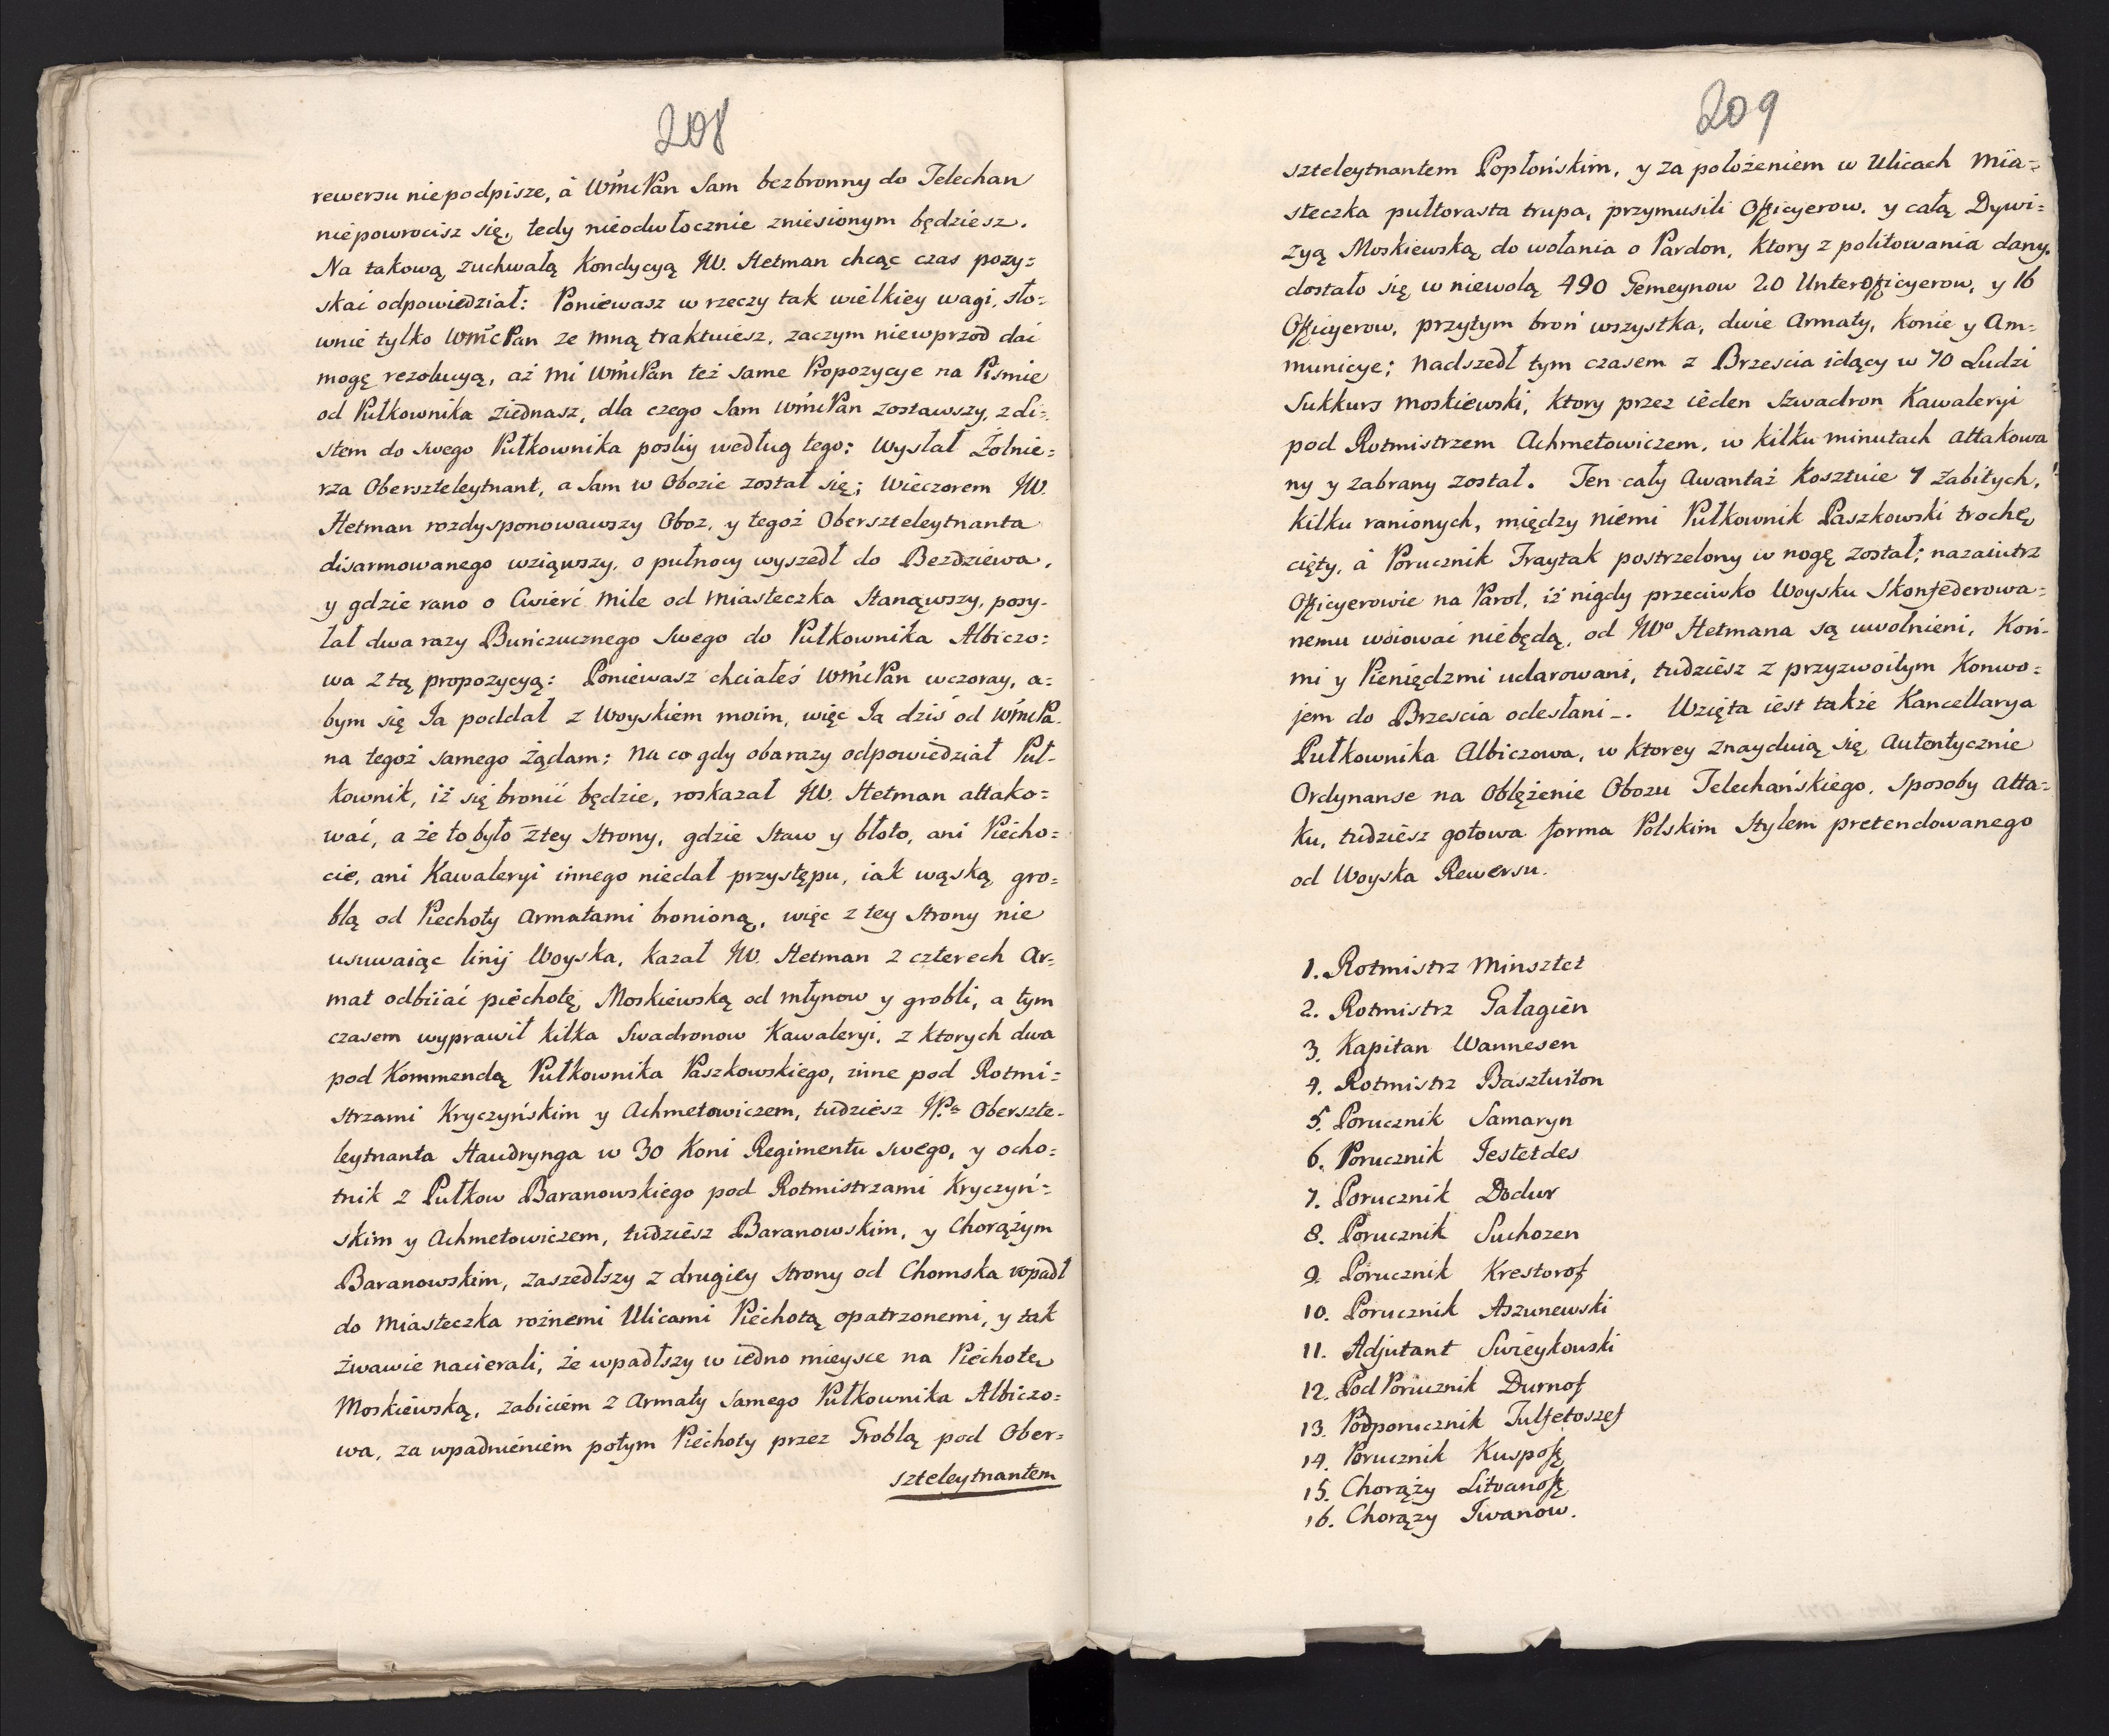 208
rewersu niepodpisze, á WmćPan Sam bezbronny do Telechan
niepowrocisz się, tedy nieodwłocznie zniesionym będziesz.
Na takową zuchwałą Kondycyą JW. Hetman chcąc czas pozy=
skai odpowiedział: Poniewasz w rzeczy tak wielkiey wagi, sło=
wnie tylko WmćPan ze mną traktuiesz, zaczym niewprzod dai
mogę rezolucyą, aż mi WmćPan też same Propozycye na Pismie
od Pułkownika ziednasz, dla czego Sam WmćPan zostawszy, z Li=
stem do swego Pułkownika posliy według tego: Wysłał Żołnie=
rza Oberszteleytnant, a Sam w Obozie został się; Wieczorem JW.
Hetman rozdysponowawszy Oboz, y tegoż Oberszteleytnanta
disarmowanego wziąwszy, o pułnocy wyszedł do Bezdziewa,
y gdzie rano o Cwierć Mile od Miasteczka Stanąwszy, posy-
łał dwa razy Buńczucznego Swego do Pułkownika Albiczo=
wa z tą propozycyą: Poniewasz chciałeś WmćPan wczoray, a=
bym się Ja poddał z Woyskiem moim, więc Ja dziś od WmćPa-
na tegoż samego żądam: Na co gdy obarazy odpowiedział Puł-
kownik, iż się bronić będzie, roskazał JW. Hetman attako=
wać, a że to było z tey Strony, gdzie Staw y błoto, ani Piecho=
cie, ani Kawaleryi innego niedał przystępu, iak wąską gro=
blą od Piechoty Armatami bronioną, więc z tey Strony nie
usuwaiąc linij Woyska, kazał JW. Hetman z czterech Ar=
mat odbiiać piechotę Moskiewską od młynow y grobli, a tym
czasem wyprawił kilka Swadronow Kawaleryi, z ktorych dwa
pod Kommendą Pułkownika Paszkowskiego, inne pod Rotmi=
strzami Kryczyńskim y Achmetowiczem, tudziesz JPa Oberszte-
leytnanta Haudrynga w 30 Koni Regimentu swego, y ocho=
tnik z Pułkow Baranowskiego pod Rotmistrzami Kryczyń=
skim y Achmetowiczem, tudziesz Baranowskim, y Chorążym
Baranowskim, zaszedłszy z drugiey Strony od Chomska wpadł
do Miasteczka rożnemi Ulicami Piechotą opatrzonemi, y tak
żwawie nacierali, że wpadłszy w iedno mieysce na Piechotę
Moskiewską, zabiciem z Armaty samego Pułkownika Albiczo=
wa, za wpadnieniem potym Piechoty przez Groblą pod Ober=
szteleytnantem
209
szteleytnantem Popłońskim, y za położeniem w Ulicach Mia=
steczka pułtorasta trupa, przymusili Officyerow, y całą Dywi=
zyą Moskiewską do wołania o Pardon, ktory z politowania dany,
dostało się w niewolą 490 Gemeynow 20 Unterofficyerow, y 16
Officyerow, przytym broń wszystka, dwie Armaty, Konie y Am=
municye; Nadszedł tym czasem z Brzescia idący w 70 Ludzi
Sukkurs Moskiewski, ktory przez ieden Szwadron Kawaleryi
pod Rotmistrzem Achmetowiczem, w kilku minutach attakowa
ny y zabrany został. Ten cały Awantaż kosztuie 7 zabitych,
kilku ranionych, między niemi Pułkownik Paszkowski trochę
cięty, á Porucznik Fraytak postrzelony w nogę został; nazaiutrz
Officyerowie na Parol, iż nigdy przeciwko Woysku Skonfederowa=
nemu woiowai niebędą, od JWo Hetmana są uwolnieni, Koń-
mi y Pieniędzmi udarowani, tudziesz z przyzwoitym Konwo=
jem do Brzescia odesłani -. Wzięta iest także Kancellarya
Pułkownika Albiczowa, w ktorey znayduią się Autentycznie
Ordynanse na Oblężenie Obozu Telechańskiego, Sposoby Atta=
ku, tudziesz gotowa forma Polskim Stylem pretendowanego
od Woyska Rewersu.
1. Rotmistrz Minsztet
2. Rotmistrz Gałagien
3. Kapitan Wannesen
4. Rotmistrz Basztuiton
5. Porucznik Samaryn
6. Porucznik Testetdes
7. Porucznik Dodur
8. Porucznik Suchozen
9. Porucznik Krestorof
10. Porucznik Aszunewski
11. Adjutant Swieykowski
12. Pod Porucznik Durnof
13. Podporucznik Tulfetoszef
14. Porucznik Kuspoff
15. Chorąży Litvanoff
16. Chorązy Iwanow.